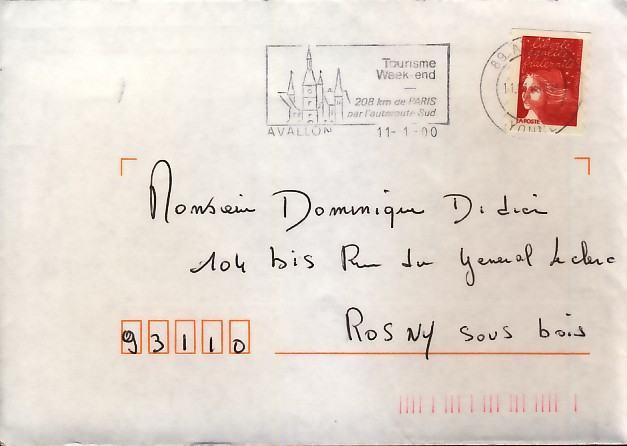 Tourisme
Week-end
208 km de PARIS
par l'autoroute Sud
AVALLON 11-1-00
liberté
égalité
fraternité
LA POSTE
89-A
11.
YONNE
Monsieur Dominique Didier
104 bis Rue du General Leclerc
93110 ROSNY sous bois